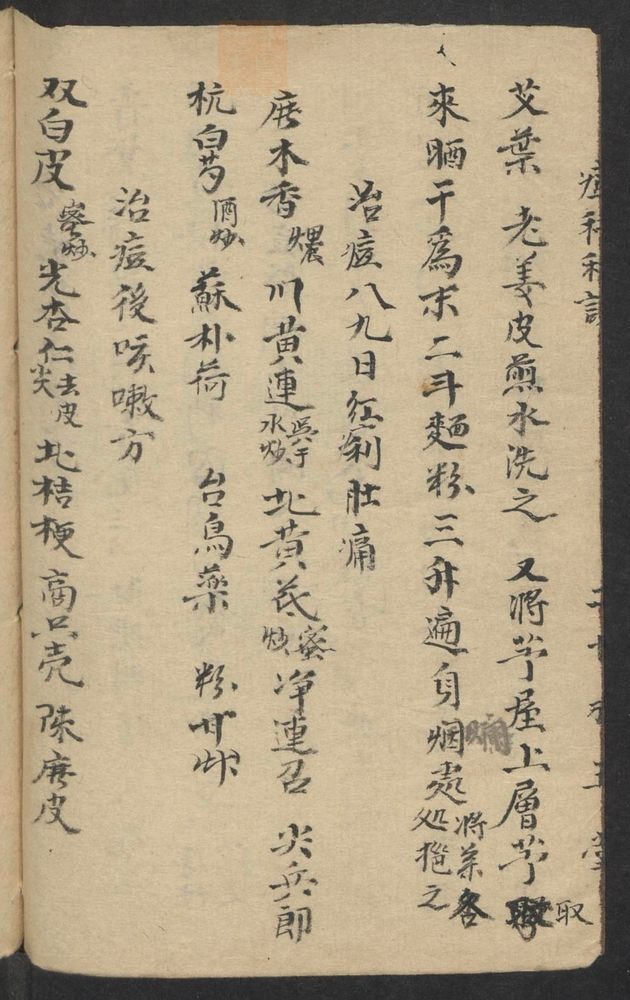 痘科秘訣
艾葉 老姜皮煎水洗之 又將茅屋上層茅取
來晒干為末二斗麵粉三升遍身烟処將藥各処搽之
治痘八九日紅痢肚痛
広木香煨 川黄連吳于水炒 北黄芪蜜炒 净連召 尖兵郎
杭白芍酒炒 蘇朴荷 台烏藥 粉甘艸
治痘後咳嗽方
双白皮蜜炒 光杏仁去皮尖 北桔梗 商只壳 陳広皮